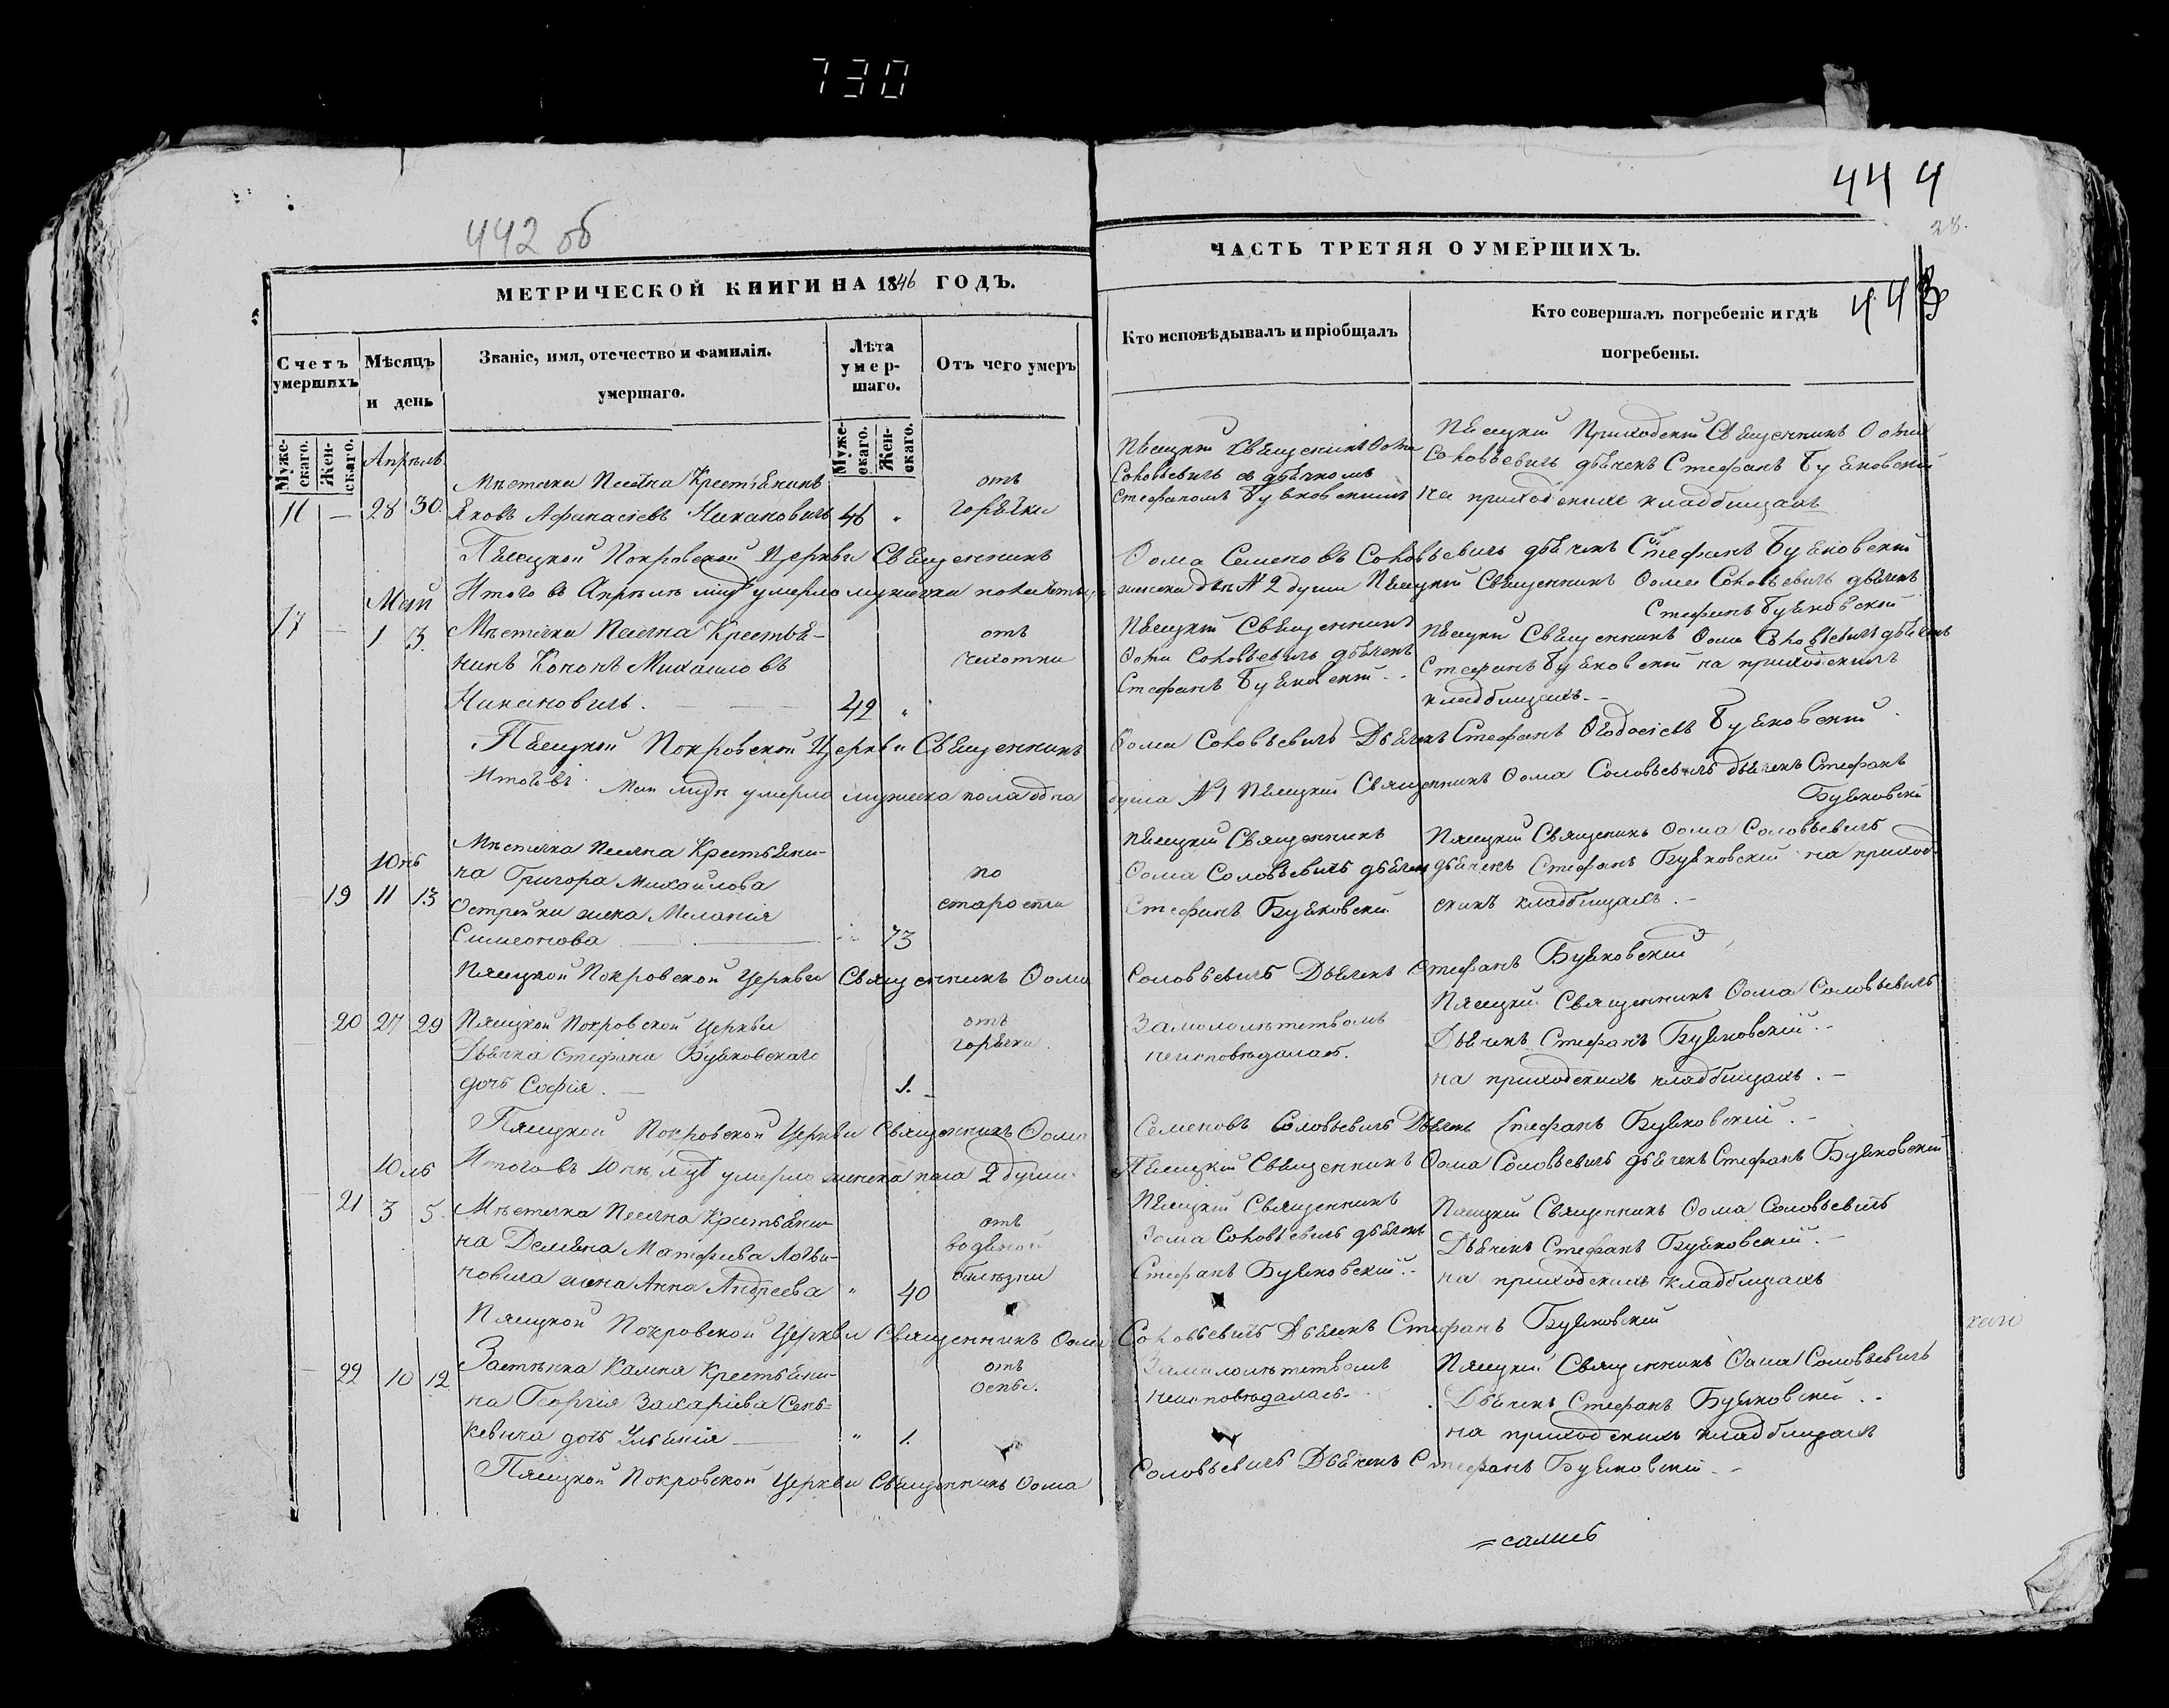 730
442 об
МЕТРИЧЕСКОЙ КНИГИ НА 1846 ГОДЪ.
Счетъ умершихъ
Мѣсяцъ и день
Званіе, имя, отечество и фамилія.
умершаго.
Лѣта умер-
шаго.
Отъ чего умеръ
Муже-
скаго.
Жен-
скаго.
Муже-
скаго.
Жен-
скаго.
Апрѣль
Мѣстечка Песечна Крестьянинъ
отъ
16 — 28 30. Яковъ Афанасіевъ 46 „ горячки
Пѣсецкой Покровской Церкви Священникъ
Итого въ Апрѣлѣ умерло мужеска пола
Май
17 — 1 3. Мѣстечка Песечна Крестья-
отъ
нинъ Кононъ Михаиловъ
чахотки
42 „
Пѣсецкой Покровской Церкви Священникъ
Итого въ умерло мужеска пола одна
Юнь
Мѣстечка Песечна Крестьяни-
на Григора Михайлова
по
— 19 11 13 жена Меланія
старости
Симеонова 73
Пясецкой Покровской Церкви Священникъ Ѳома
20 27 29 Пясецкой Покровской Церкви
отъ
Дьячка Стефана Буяковскаго
горячки.
дочь Софія. — 1. —
Пясецкой Покровской Церкви Священникъ Ѳома
Итого въ Юнѣ умерло женска пола 2 души.
Юль
— 21 3 5. Мѣстечка Песечна Крестьяни-
отъ
на Демяна Матфіева Логви-
водяной
новича жена Анна Андреева „ 40
Пясецкой Покровской Церкви Священникъ Ѳома
— 22 10 12 Застѣнка Камня Крестьяни-
отъ
на Георгія Захаріева Сень-
оспы.
кевича дочь Ульянія — „ 1.
Пясецкой Покровской Церкви Священникъ Ѳома
444
28.
ЧАСТЬ ТРЕТЯЯ О УМЕРШИХЪ.
443
Кто исповѣдывалъ и пріобщалъ
Кто совершалъ погребеніе и гдѣ
погребены.
Пѣсецкій Священникъ Ѳома
Соловьевичь съ дьячкомъ
Стефаномъ Буяковскимъ
Пѣсецкій Приходскій Священникъ Ѳома
Соловьевичь дьячекъ Стефанъ Буяковскій
на приходскихъ кладбищахъ
Ѳома Семеновъ Соловьевичь дьячекъ Стефанъ Буяковскій
№ 2 души Пясецкій Священникъ Ѳома Соловьевичь дьячекъ
Стефанъ Буяковскій
Пѣсецкій Священникъ
Ѳома Соловьевичь дьячекъ
Стефанъ Буяковскій. -
Пясецкій Священникъ Ѳома Соловьевичь дьячекъ
Стефанъ Буяковскій на приходскихъ
кладбищахъ. -
Ѳома Соловьевичь Дьячекъ Стефанъ Ѳеодосіевъ Буяковскій
душа № 1 Пясецкій Священникъ Ѳома Соловьевичь дьячекъ Стефанъ
Буяковскій
Пясецкій Священникъ
Ѳома Соловьевичь дьячекъ
Стефанъ Буяковскій.
Пясецкій Священикъ Ѳома Соловьевичь
дьячекъ Стефанъ Буяковскій на приход-
скихъ кладбищахъ. -
Соловьевичь Дьячекъ Стефанъ Буяковскій
Замололѣтствомъ
неисповѣдалась.
Пясецкій Священникъ Ѳома Соловьевичь
Дьячекъ Стефанъ Буяковскій. -
на приходскихъ кладбищахъ. -
Семеновъ Соловьевичь Дьячекъ Стефанъ Буяковскій. -
Пясецкій Священникъ Ѳома Соловьевичь дьячекъ Стефанъ Буяковскій
Пясецкій Священникъ
Ѳома Соловьевичь дьячекъ
Стефанъ Буяковскій. -
Пясецкій Священникъ Ѳома Соловьевичь
Дьячекъ Стефанъ Буяковскій. -
на приходскихъ кладбищахъ
Соловьевичь Дьячекъ Стефанъ Буяковскій
Замалолѣтствомъ
неисповѣдалась.
Пясецкій Священникъ Ѳома Соловьевичь
Дьячекъ Стефанъ Буяковскій. -
на приходскихъ кладбищахъ
Соловьевичь Дьячекъ Стефанъ Буяковскій. -